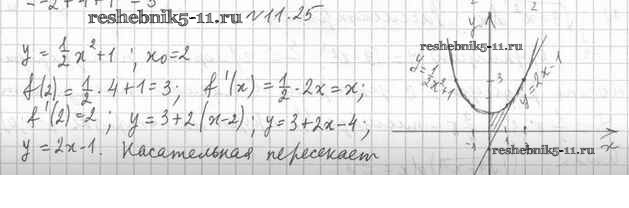 reshebnik5-11.ru
№11.25
y = 1/2 x² + 1 ; x₀ = 2
f(2) = 1/2 · 4 + 1 = 3; f'(x) = 1/2 · 2x = x;
f'(2) = 2 ; y = 3 + 2(x-2); y = 3 + 2x - 4;
y = 2x - 1. Касательная пересекает
y
reshebnik5-11.ru
3
y = 1/2 x² + 1
y = 2x - 1
-1
1
2
x
reshebnik5-11.ru